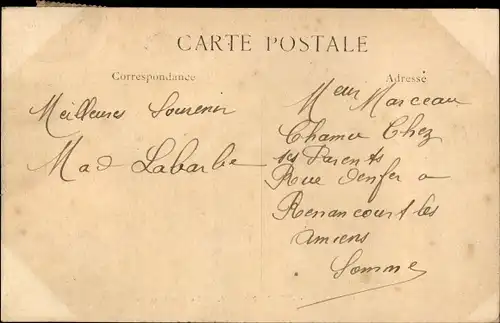 CARTE POSTALE
Correspondance
Meilleures Souvenir
Mad Labarbe
Adresse
Meur Marceau
Chez
ses Parents
Rue denfer a
Renancourt les
Amiens
Somme